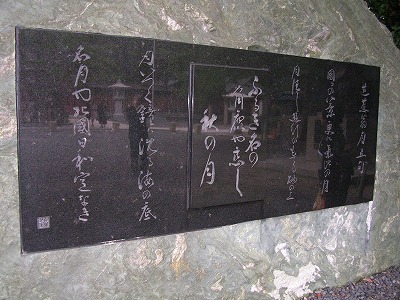 芭蕉翁月五句
国々の八景更に氣比の月
月清し遊行のもてる砂の上
ふるき名の
角鹿や恋し
秋の月
月いつく鐘は沈る海の底
名月や北國日和定なき